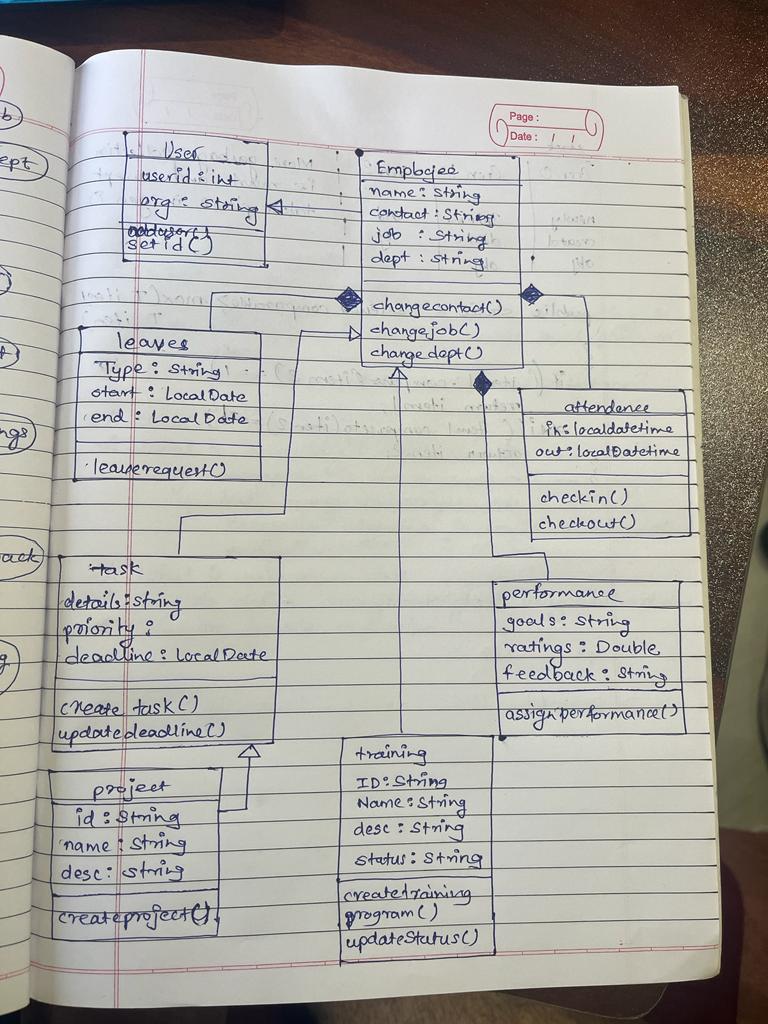 Page :
Date : / /
User
userid : int
org : string
setid()
Employee
name : String
contact : String
job : String
dept : String
changecontact()
changejob()
changedept()
leaves
Type : String
start : LocalDate
end : LocalDate
leaverequest()
attendence
in : localdatetime
out : localDatetime
checkin()
checkout()
task
details : string
priority :
deadline : LocalDate
create task()
updatedeadline()
performance
goals : String
ratings : Double
feedback : String
assignperformance()
project
id : String
name : String
desc : string
createproject()
training
ID : String
Name : String
desc : String
status : String
createtraining
program()
updateStatus()